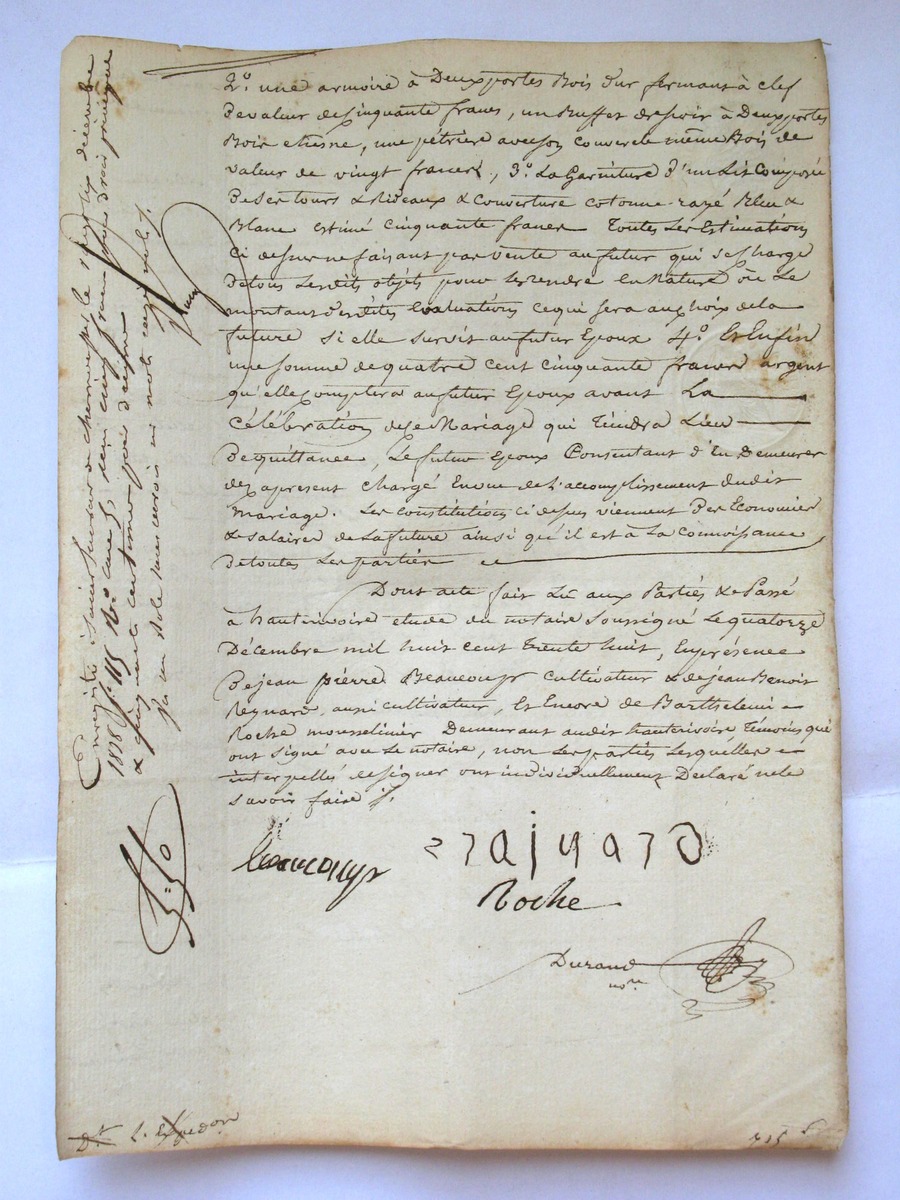 2.° une armoire à Deux portes Bois dur fermant à clef
De valeur de Cinquante francs, un Buffet dressoir à Deux portes
Bois chesne, une pétrière avec son couvercle même Bois de
valeur de vingt francs, 3.° La Garniture d'un Lit Composée
De ses tours & Rideaux & couverture cotonne rayé Bleu &
Blanc estimé cinquante francs Toutes Les Estimations
ci dessus ne faisant pas vente au futur qui se charge
De tous Lesdits objets pour les rendre En Nature où Le
montant desdites Evaluations ce qui sera au choix de la
future si elle survit au futur Epoux 4.° Et Enfin
une somme de quatre cent cinquante francs argent
qu'elle Comptera au futur Epoux avant La
Célébration de ce Mariage qui Tiendra Lieu
De quittance, Le futur Epoux Consentant d'En Demeurer
des a present chargé Envue de L'accomplissement dudit
Mariage. Les constitutions ci dessus viennent Des Economies
& salaires de La future ainsi qu'il est à La Connoissance
De toutes Les parties
Dont acte fait Lû aux Parties & Passé
à hauterivoire etude du notaire soussigné Le quatorze
Décembre mil huit cent Trente huit, En présence
De jean pierre Beaucoup cultivateur & de jean Benoit
Reynard aussi cultivateur, Et Encore de Barthelemi
Roche mousselinier Demeurant audit hauterivoire, Témoins qui
ont signé avec Le notaire, non Les parties Lesquelles
interpellés de signer ont individuellement Declaré ne le
savoir faire
Beaucoup
Roche
Durand
nore
Enregistré à le vingt six décembre
1838 f. 115 R.° cases cinq francs pour droit principal
& cinquante centimes pour decime